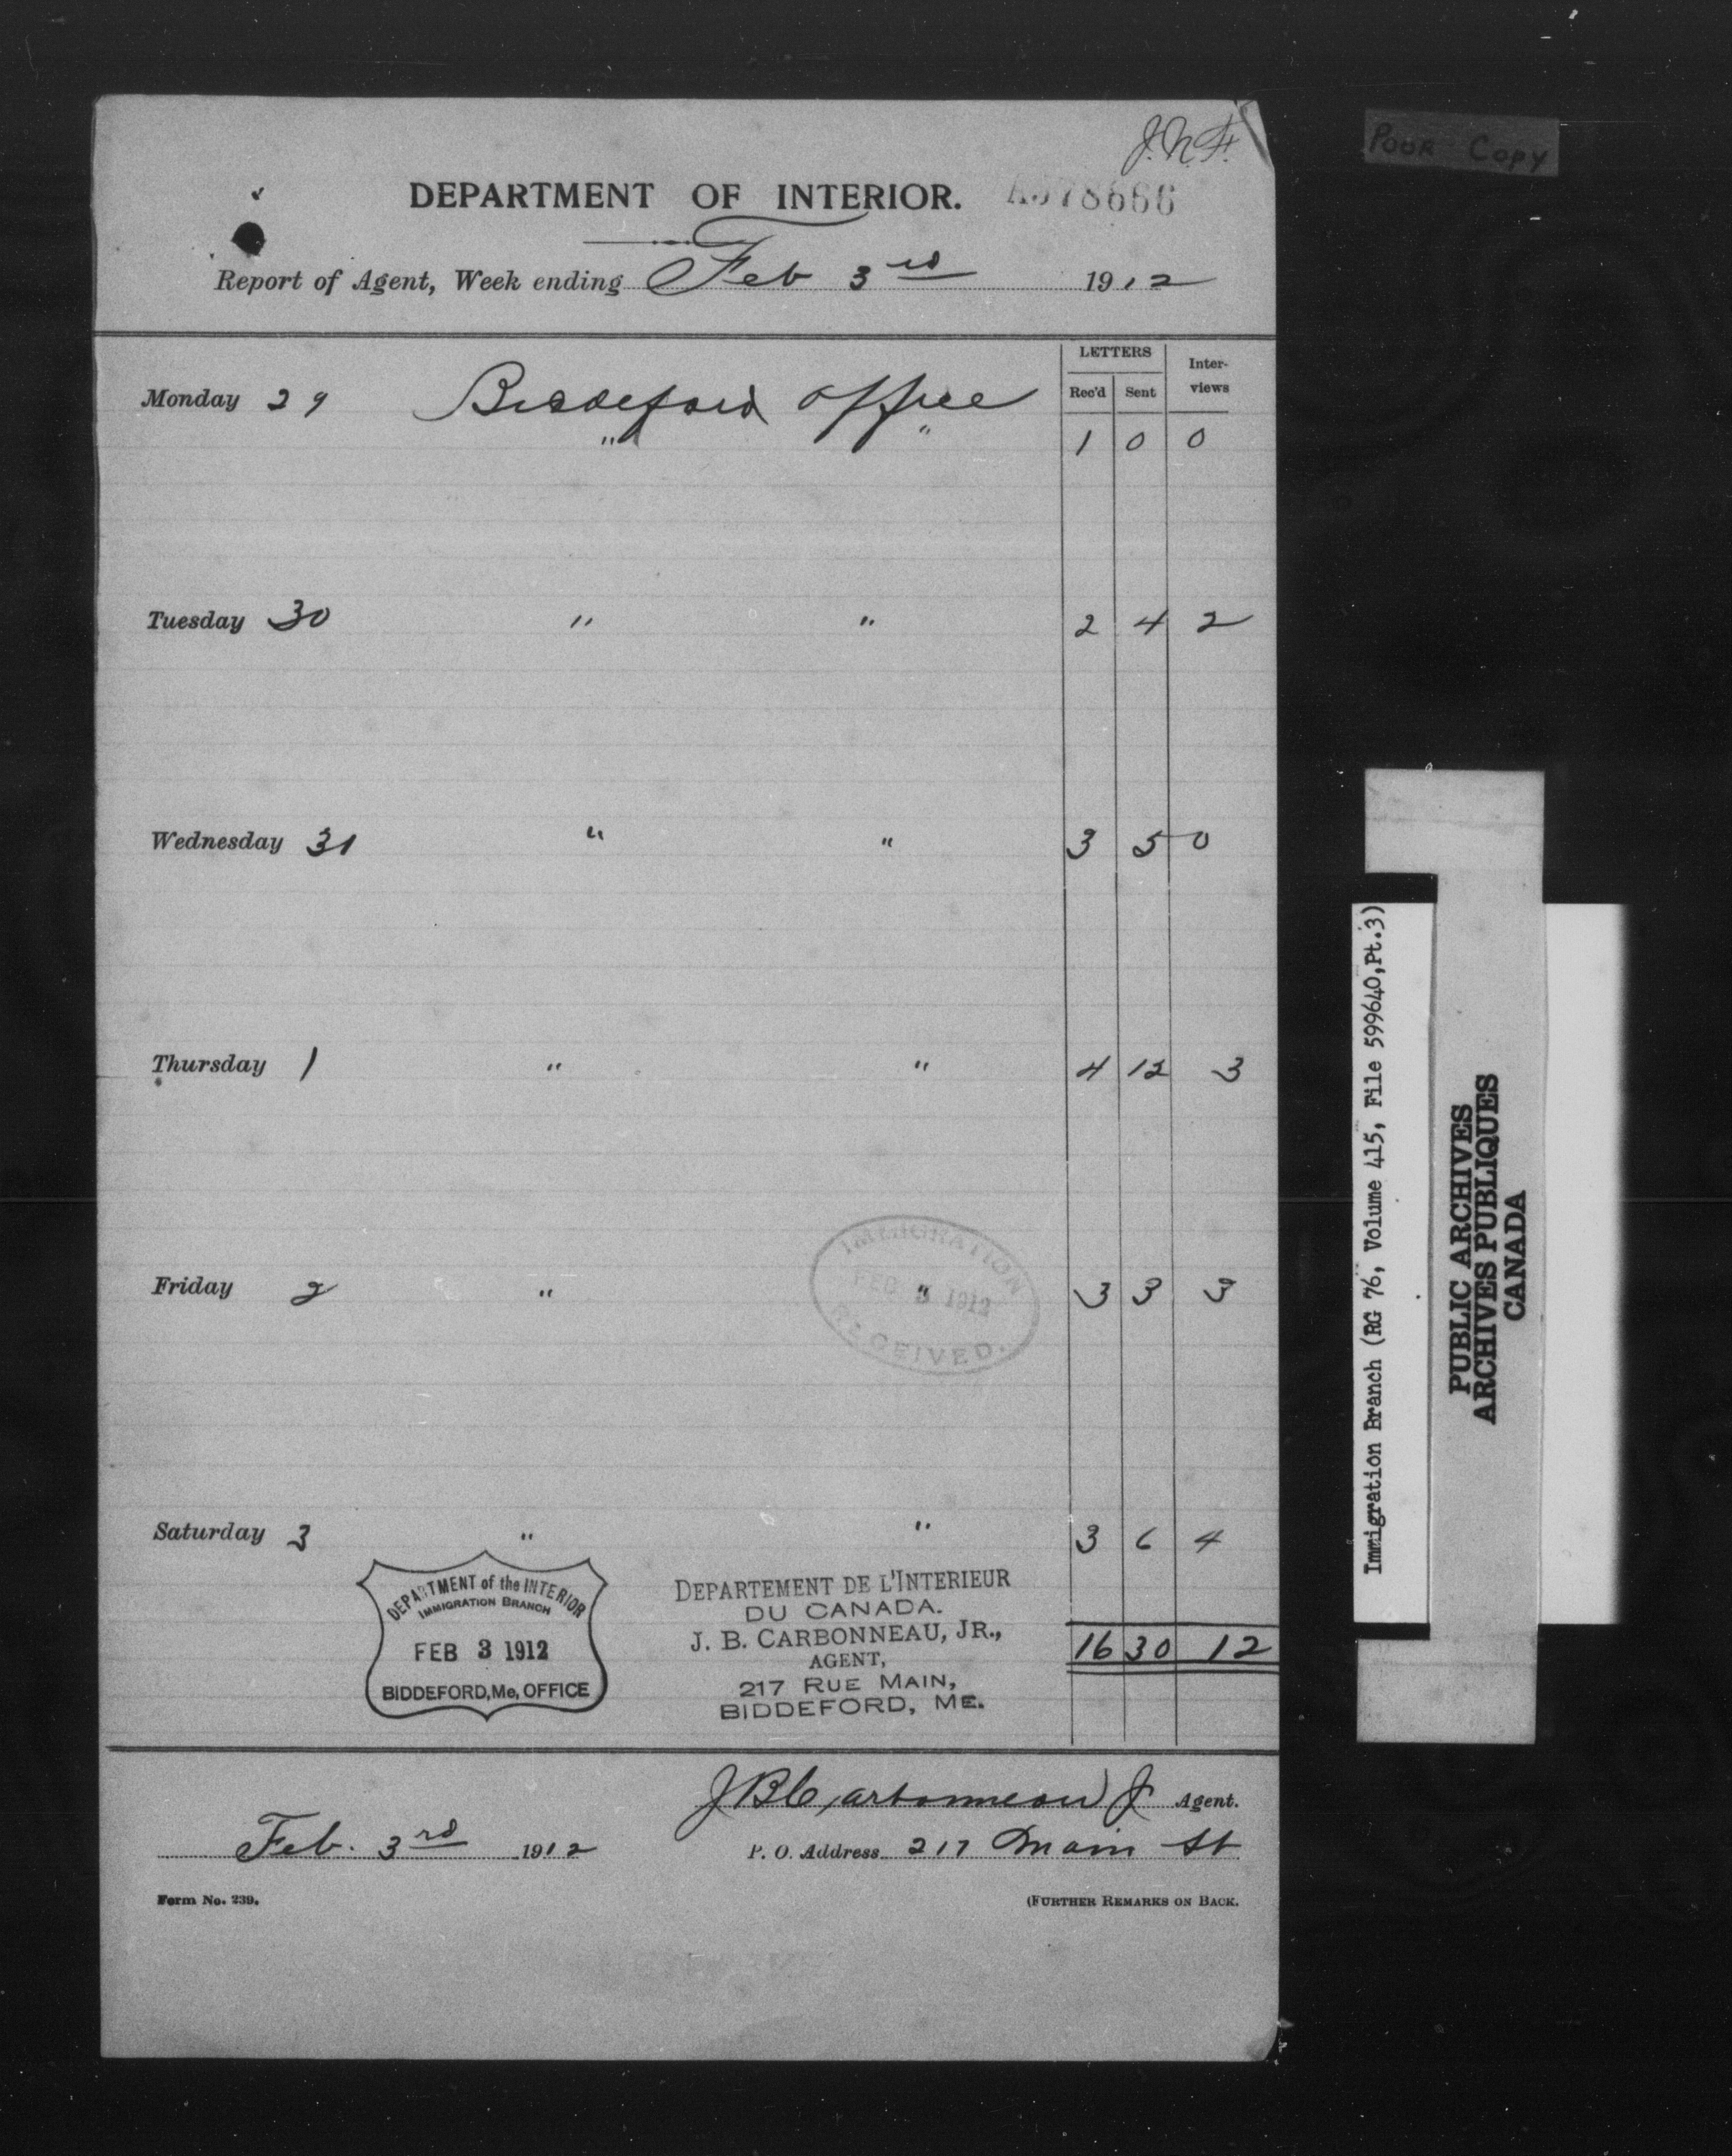 J.N.F.
Poor Copy
DEPARTMENT OF INTERIOR. A378666
Report of Agent, Week ending Feb 3rd 1912
LETTERS
Rec'd Sent Inter-views
Monday 29 Biddeford office
" " 1 0 0
Tuesday 30 " " 2 4 2
Wednesday 31 " " 3 5 0
Thursday 1 " " 4 12 3
Friday 2 " " 3 3 3
IMMIGRATION
FEB 3 1912
RECEIVED.
Saturday 3 " " 3 6 4
DEPARTMENT of the INTERIOR
IMMIGRATION BRANCH
FEB 3 1912
BIDDEFORD, Me, OFFICE
DEPARTEMENT DE L'INTERIEUR
DU CANADA.
J. B. CARBONNEAU, JR.,
AGENT,
217 RUE MAIN,
BIDDEFORD, ME.
16 30 12
J B Carbonneau Jr Agent.
Feb. 3rd 1912 P. O. Address 217 Main St
Form No. 239. (FURTHER REMARKS ON BACK.
Immigration Branch (RG 76, Volume 415, File 599640, Pt.3)
PUBLIC ARCHIVES
ARCHIVES PUBLIQUES
CANADA